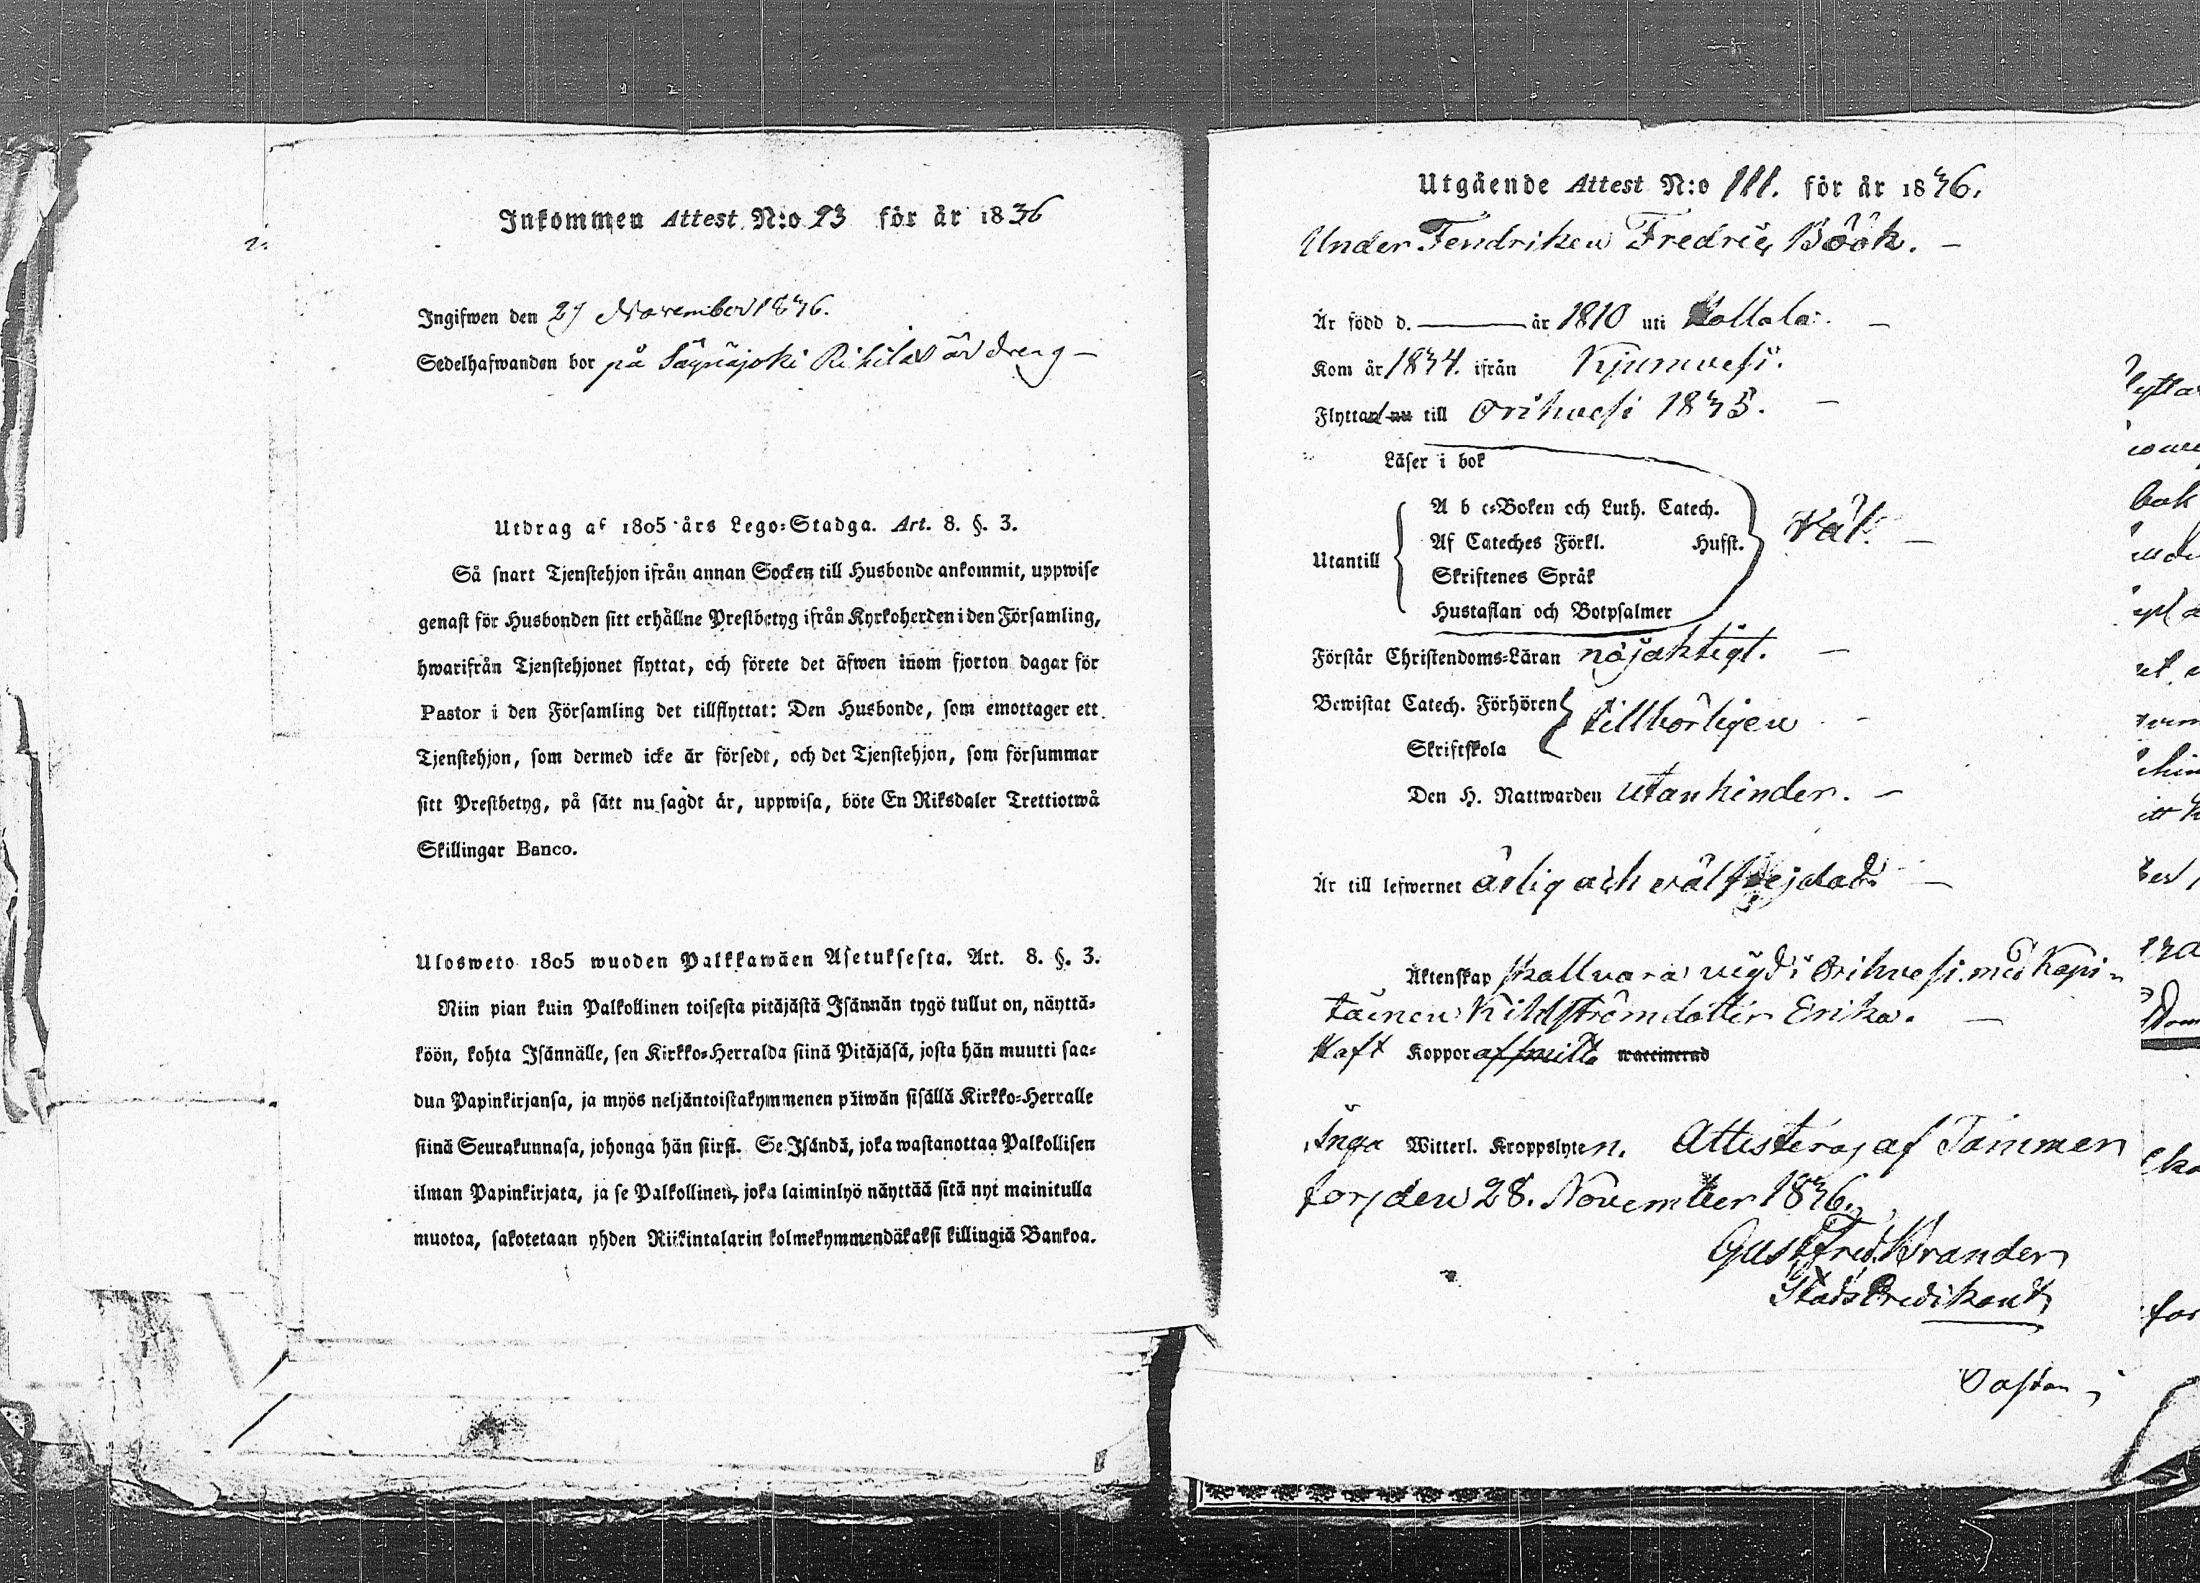 Inkommen Attest N:o 93 för år 1836
Ingifwen den 29 November 1836.
Sedelhafwanden bor på Säynäjoki är dreng —
Utdrag af 1805 års Lego-Stadga. Art. 8. §. 3.
Så snart Tjenstehjon ifrån annan Socken till Husbonde ankommit, uppwise
genast för Husbonden sitt erhållne Prestbetyg ifrån Kyrkoherden i den Församling,
hwarifrån Tjenstehjonet flyttat, och förete det äfwen inom fjorton dagar för
Pastor i den Församling det tillflyttat: Den Husbonde, som emottager ett
Tjenstehjon, som dermed icke är försedt, och det Tjenstehjon, som försummar
sitt Prestbetyg, på sätt nu sagdt är, uppwisa, böte En Riksdaler Trettiotwå
Skillingar Banco.
Ulosweto 1805 wuoden Palkkawäen Asetuksesta. Art. 8. §. 3.
Niin pian kuin Palkollinen toisesta pitäjästä Isännän tygö tullut on, näyttä-
köön, kohta Isännälle, sen Kirkko-Herralda siinä Pitäjäsä, josta hän muutti saa-
dun Papinkirjansa, ja myös neljäntoistakymmenen päiwän sisällä Kirkko-Herralle
siinä Seurakunnasa, johonga hän siirsi. Se Isändä, joka wastanottaa Palkollisen
ilman Papinkirjata, ja se Palkollinen, joka laiminlyö näyttää sitä nyt mainitulla
muotoa, sakotetaan yhden Riikintalarin kolmekymmendäkaksi killingiä Bankoa.
Utgående Attest N:o 111. för år 1836.
Under Fendriken Fredric Böök. —
Är född d. — år 1810 uti Hollola. —
Kom år 1834. ifrån Kjumvesi.
Flyttar nu till Orihvesi 1835. —
Läser i bok
A b c-Boken och Luth. Catech.
Af Cateches Förkl. Hufst.
Utantill
Skriftenes Språk
Hustaflan och Botpsalmer
Väl. —
Förstår Christendoms-Läran nöjaktigt. —
Bewistat Catech. Förhören
Skriftskola
tillbörligen —
Den H. Nattwarden utan hinder. —
Är till lefwernet ärlig och välfrejdad —
Äktenskap skall vara vigd i Orihvesi med Kapi-
tainen Kihlström dotter Erika. —
Haft Koppor waccinerad
Inga Witterl. Kroppslyten. Attesteras af Tammer
fors den 28. November 1836.
Gust. Fred. Wrander
StadsPredikant